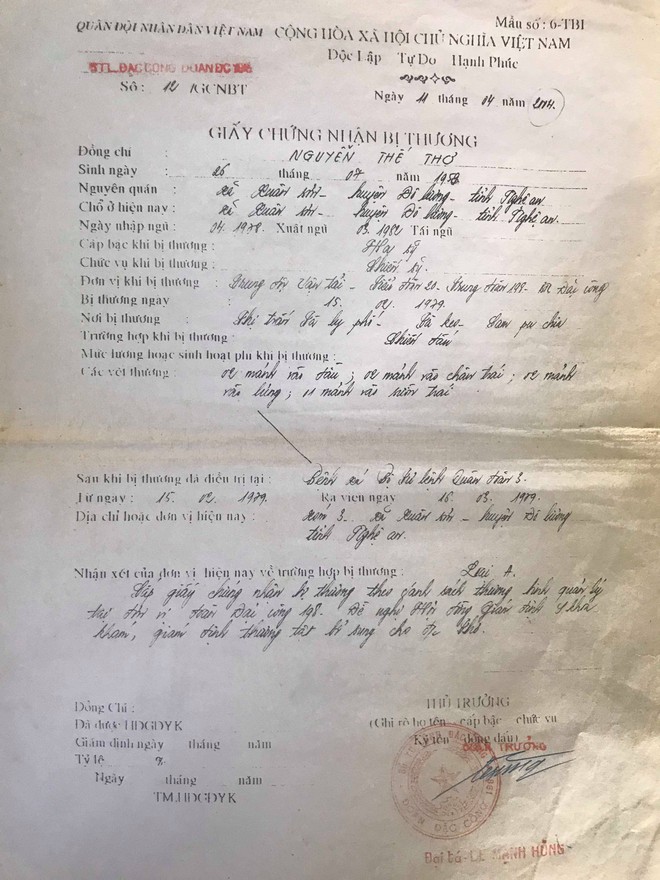 Mẫu số : 6-TBI
QUÂN ĐỘI NHÂN DÂN VIỆT NAM CỘNG HÒA XÃ HỘI CHỦ NGHĨA VIỆT NAM
BTL.ĐẶC CÔNG ĐOÀN ĐC 198 Độc Lập Tự Do Hạnh Phúc
Số : 12 /GCNBT
Ngày 11 tháng 04 năm 2004.
GIẤY CHỨNG NHẬN BỊ THƯƠNG
Đồng chí : NGUYỄN THẾ THƠ
Sinh ngày : 26 tháng 07 năm 1958
Nguyên quán : Xã Xuân Sơn - huyện Đô lương - tỉnh Nghệ an.
Chỗ ở hiện nay : Xã Xuân Sơn - huyện Đô lương - tỉnh Nghệ an.
Ngày nhập ngũ : 04 1978. Xuất ngũ 03 1982 Tái ngũ
Cấp bậc khi bị thương : Hạ sỹ
Chức vụ khi bị thương : Chiến sỹ.
Đơn vị khi bị thương : Trung đội Vận tải - Tiểu đoàn 20 - Trung đoàn 198 - Đặc công
Bị thương ngày : 15. 02. 1979.
Nơi bị thương : Thị trấn
Trường hợp khi bị thương : Chiến đấu
Mức lương hoặc sinh hoạt phí khi bị thương :
Các vết thương : 02 mảnh vào đầu ; 02 mảnh vào chân trái ; 02 mảnh
vào lưng ; 01 mảnh vào sườn trái
Sau khi bị thương đã điều trị tại : Bệnh xá Bộ Tư lệnh Quân đoàn 3.
Từ ngày : 15. 02. 1979. Ra viện ngày 15 03. 1979.
Địa chỉ hoặc đơn vị hiện nay : Xóm 3 - Xã Xuân Sơn - huyện Đô lương
tỉnh Nghệ an.
Nhận xét của đơn vị hiện nay về trường hợp bị thương : Loại A.
Cấp giấy chứng nhận bị thương theo danh sách thương binh quản lý
tại đơn vị đoàn Đặc công 198. Đề nghị Hội đồng Giám định Y khoa
khám, giám định thương tật bổ sung cho đ/c Thơ.
Đồng Chí : THỦ TRƯỞNG
Đã được HĐGĐYK (Ghi rõ họ tên cấp bậc chức vụ
Giám định ngày tháng năm Ký tên đóng dấu)
Tỷ lệ % ĐOÀN TRƯỞNG
Ngày tháng năm
TM.HĐGĐYK
ĐOÀN ĐẶC CÔNG 198
Đại tá - LÊ MẠNH HÙNG